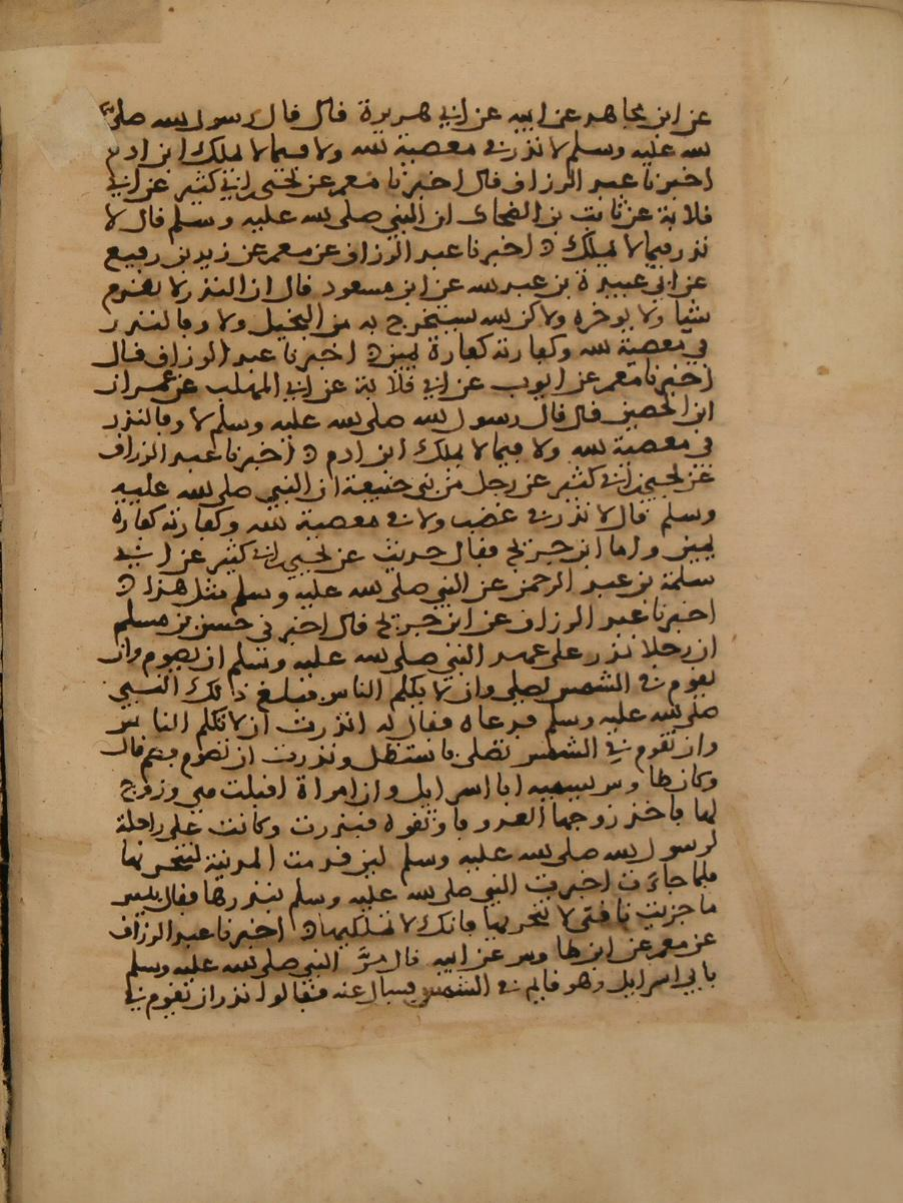 عن ابن مجاهد عن ابيه عن ابي هريرة قال قال رسول الله صلى
الله عليه وسلم لا نذر في معصية لله ولا فيما لا يملك ابن ادم
اخبرنا عبد الرزاق قال اخبرنا معمر عن يحيى ابن ابي كثير عن ابي
قلابة عن ثابت بن الضحاك ان النبي صلى الله عليه وسلم قال لا
نذر فيما لا يملك اخبرنا عبد الرزاق عن معمر عن زيد بن رفيع
عن ابي عبيدة بن عبد الله عن ابن مسعود قال ان النذر لا يقدم
شيا ولا يوخره ولاكن الله يستخرج به من البخيل ولا وفا لنذر
في معصية لله وكفارته كفارة يمين اخبرنا عبد الرزاق قال
اخبرنا معمر عن ايوب عن ابي قلابة عن ابي المهلب عن عمران
ابن الحصين قال قال رسول الله صلى الله عليه وسلم لا وفا لنذر
في معصية لله ولا فيما لا يملك ابن ادم اخبرنا عبد الرزاق
عن يحيى بن ابي كثير عن رجل من بني حنيفة ان النبي صلى الله عليه
وسلم قال لا نذر في غضب ولا في معصية لله وكفارته كفارة
يمين واما ابن جريج فقال حديث عن يحيى ابن ابي كثير عن ابي
سلمة بن عبد الرحمن عن النبي صلى الله عليه وسلم مثل هذا
اخبرنا عبد الرزاق عن ابن جريج قال اخبرني حسن بن مسلم
ان رجلا نذر على عهد النبي صلى الله عليه وسلم ان يصوم وان
يقوم في الشمس يصلي وان لا يكلم الناس فبلغ ذلك النبي
صلى الله عليه وسلم فدعاه فقال له انذرت ان لا تكلم الناس
وان تقوم في الشمس تصلي فاستظل ونذرت ان تصوم فصم قال
وكان طاوس يسميه ابا اسرايل وان امراة اقبلت هي وزوج
لها فاخذ زوجها العدو فاوثقوه فنذرت وكانت على راحلة
لرسول الله صلى الله عليه وسلم لين قدمت المدينة لتنحرنها
فلما جاءت اخبرت النبي صلى الله عليه وسلم بنذرها فقال بيس
ما جزيت ناقتي لا تنحريها فانك لا تملكيها اخبرنا عبد الرزاق
عن معمر عن ابن طاوس عن ابيه قال مر النبي صلى الله عليه وسلم
بابي اسرايل وهو قايم في الشمس فسال عنه فقالوا نذر ان يقوم في